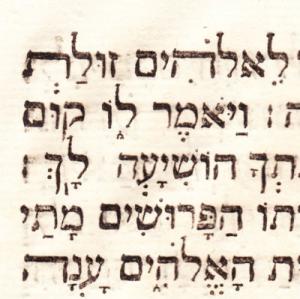 לֵאלֹהִים זוּלַת
וַיֹּאמֶר לוֹ קוּם
הוֹשִׁיעָה לָךְ
הַפָּרוּשִׁים מָתַי
הָאֱלֹהִים עָנָה